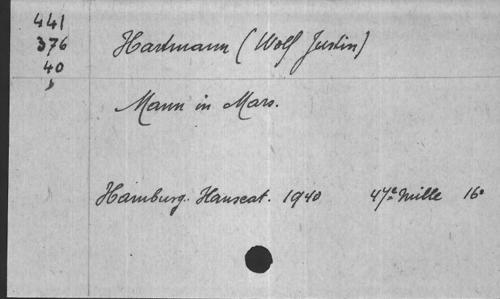 441
376
40
b
Hartmann (Wolf Justin)
Mann in Mars.
Hamburg. Hanseat. 1940 47e mille 16°